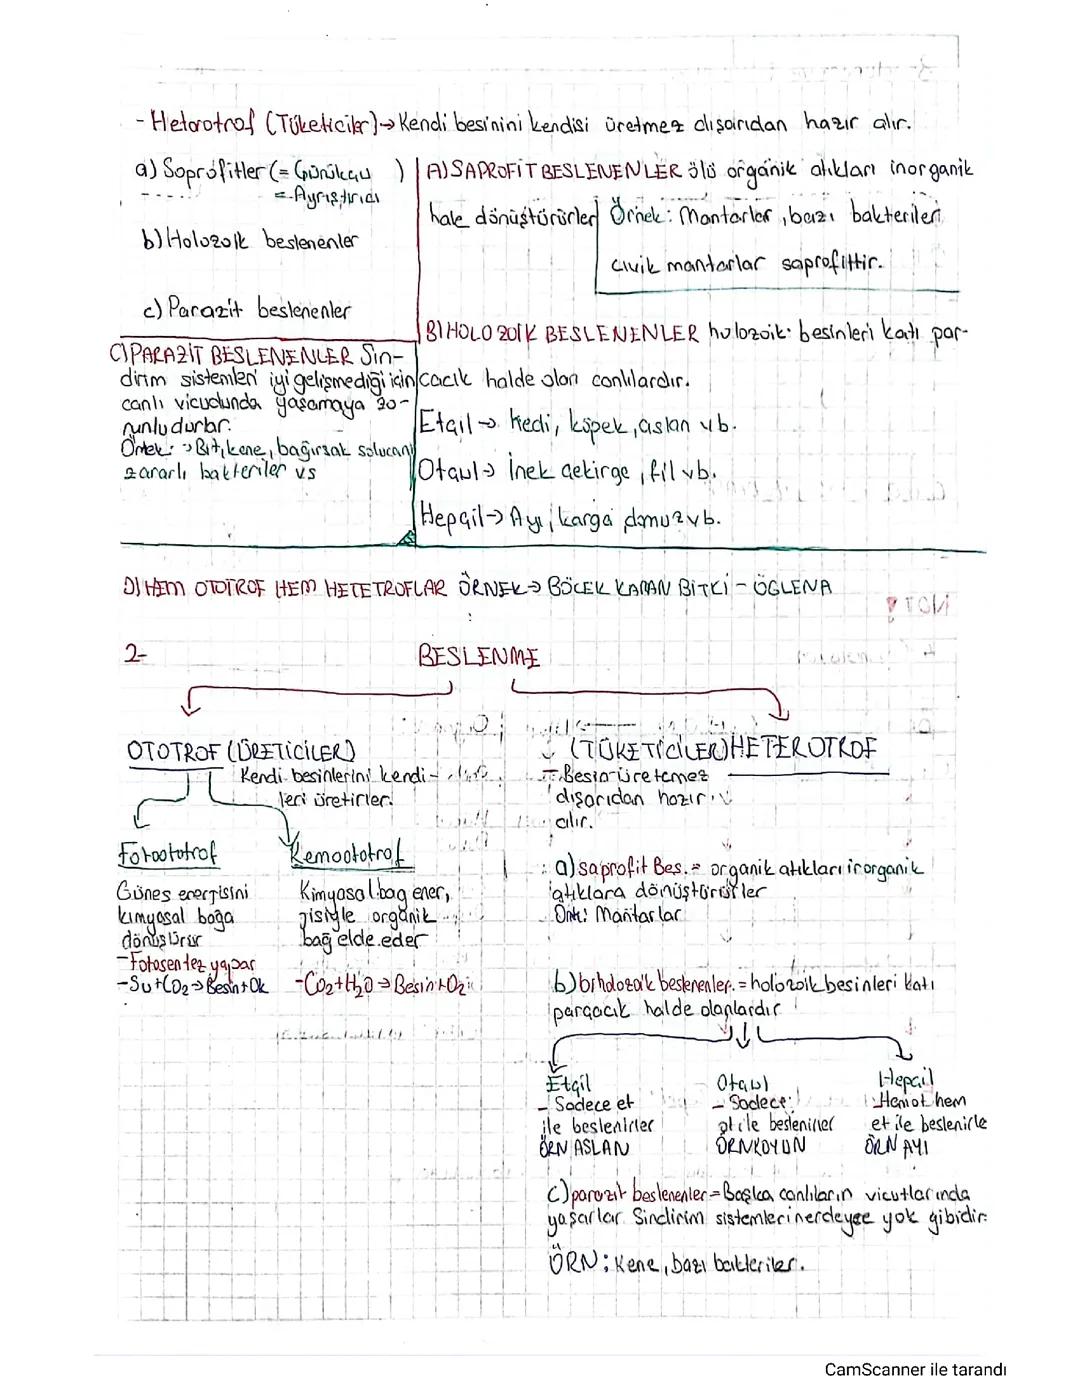 - Heterotrof (Tüketiciler)→ Kendi besinini kendisi üretmez dışarıdan hazır alır.
a) Saprofitler (= Çürükçü )
= Ayrıştırıcı
b) Holozoik beslenenler
c) Parazit beslenenler
A) SAPROFİT BESLENENLER ölü organik atıkları inorganik
hale dönüştürürler
Örnek: Mantarlar, bazı bakteriler
cıvık mantarlar saprofittir.
B) HOLOZOİK BESLENENLER holozoik: besinleri katı par-
cacık halde olan canlılardır.
Etçil → Kedi, köpek, aslan vb.
Otçul → İnek çekirge, fil vb.
Hepçil → Ayı, karga domuz vb.
C) PARAZİT BESLENENLER Sin-
dirim sistemleri iyi gelişmediği için
canlı vicudunda yaşamaya zo-
runludurlar.
Örnek: → Bit, kene, bağırsak solucanı
zararlı bakteriler vs
D) HEM OTOTROF HEM HETETROFLAR ÖRNEK → BÖCEK KAPAN BİTKİ - ÖGLENA
2- BESLENME
OTOTROF (ÜRETİCİLER)
Kendi besinlerini kendi-
leri üretirler.
Fotoototrof
Güneş enerjisini
kımyasal boğa
dönüştürür
- Fotosentez yapar
- Su + CO2 → Besin + Ok
Kemoototrof
Kimyasal bag ener,
jisiyle organik
bağ elde eder
- CO2 + H2O → Besin + O2
(TÜKETİCİLER) HETEROTROF
- Besin üretemez
dışarıdan hazır
alır.
a) saprofit Bes. = organik atıkları inorganik
atıklara dönüştürürler
Örn: Mantarlar
b) bıholozoik beslenenler. = holozoik besinleri katı
parçacık halde olanlardır
Etçil
- Sadece et
ile beslenirler
ÖRN ASLAN
Otçul
- Sadece
ot ile beslenirler
ÖRN KOYUN
Hepçil
- Hem ot hem
et ile beslenirle
ÖRN AYI
c) parazit beslenenler = Başka canlıların vicutlarında
yaşarlar. Sindirim sistemleri nerdeyse yok gibidir.
ÖRN: Kene, bazı bakteriler.
CamScanner ile tarandı